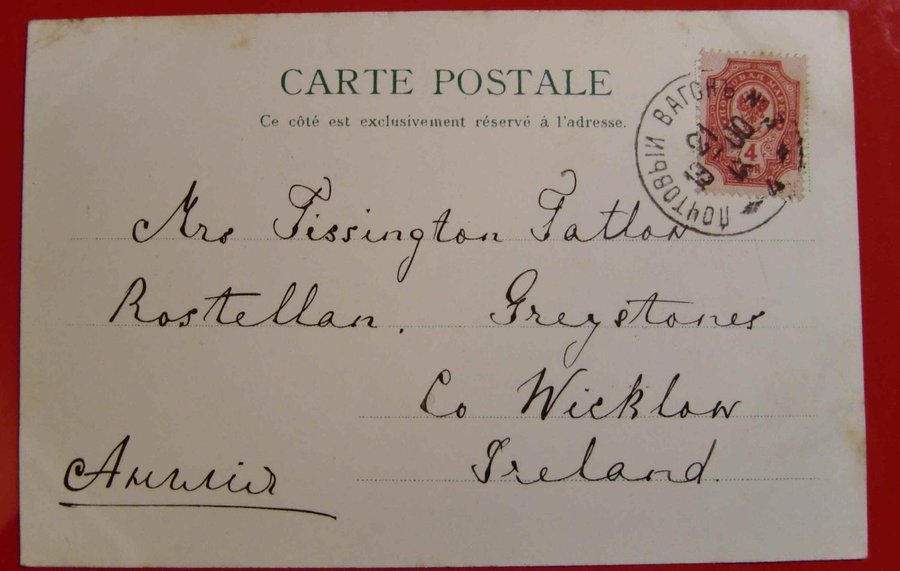 CARTE POSTALE
Ce côté est exclusivement réservé à l'adresse.
ПОЧТОВЫЙ ВАГОНЪ
ПОЧТОВАЯ МАРКА
4
Mrs Tissington Tatlow
Rostellan. Greystones
Co Wicklow
Ireland.
Англiя